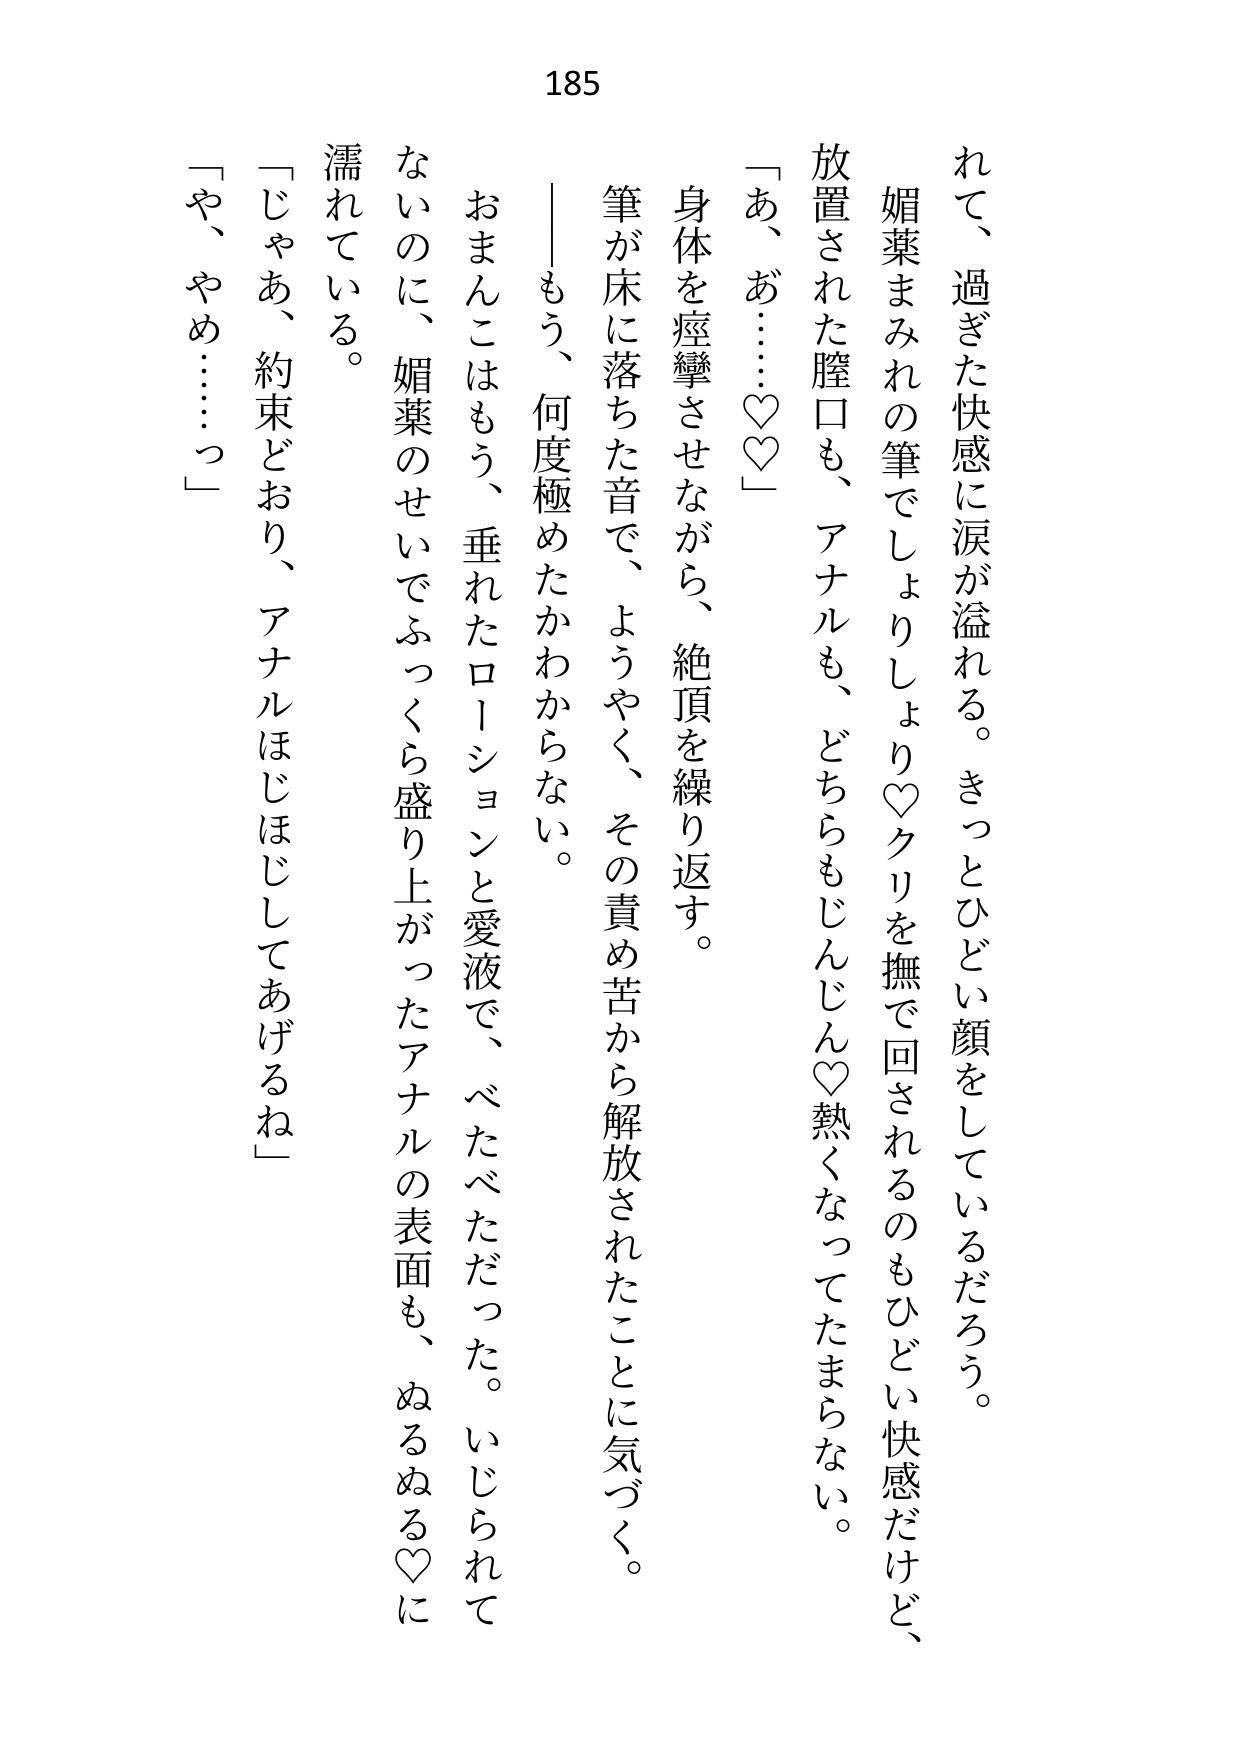 185
れて、過ぎた快感に涙が溢れる。きっとひどい顔をしているだろう。
媚薬まみれの筆でしょりしょり♡クリを撫で回されるのもひどい快感だけど、
放置された膣口も、アナルも、どちらもじんじん♡熱くなってたまらない。
「あ、あ゙……♡♡」
身体を痙攣させながら、絶頂を繰り返す。
筆が床に落ちた音で、ようやく、その責め苦から解放されたことに気づく。
――もう、何度極めたかわからない。
おまんこはもう、垂れたローションと愛液で、べたべただった。いじられて
ないのに、媚薬のせいでふっくら盛り上がったアナルの表面も、ぬるぬる♡に
濡れている。
「じゃあ、約束どおり、アナルほじほじしてあげるね」
「や、やめ……っ」